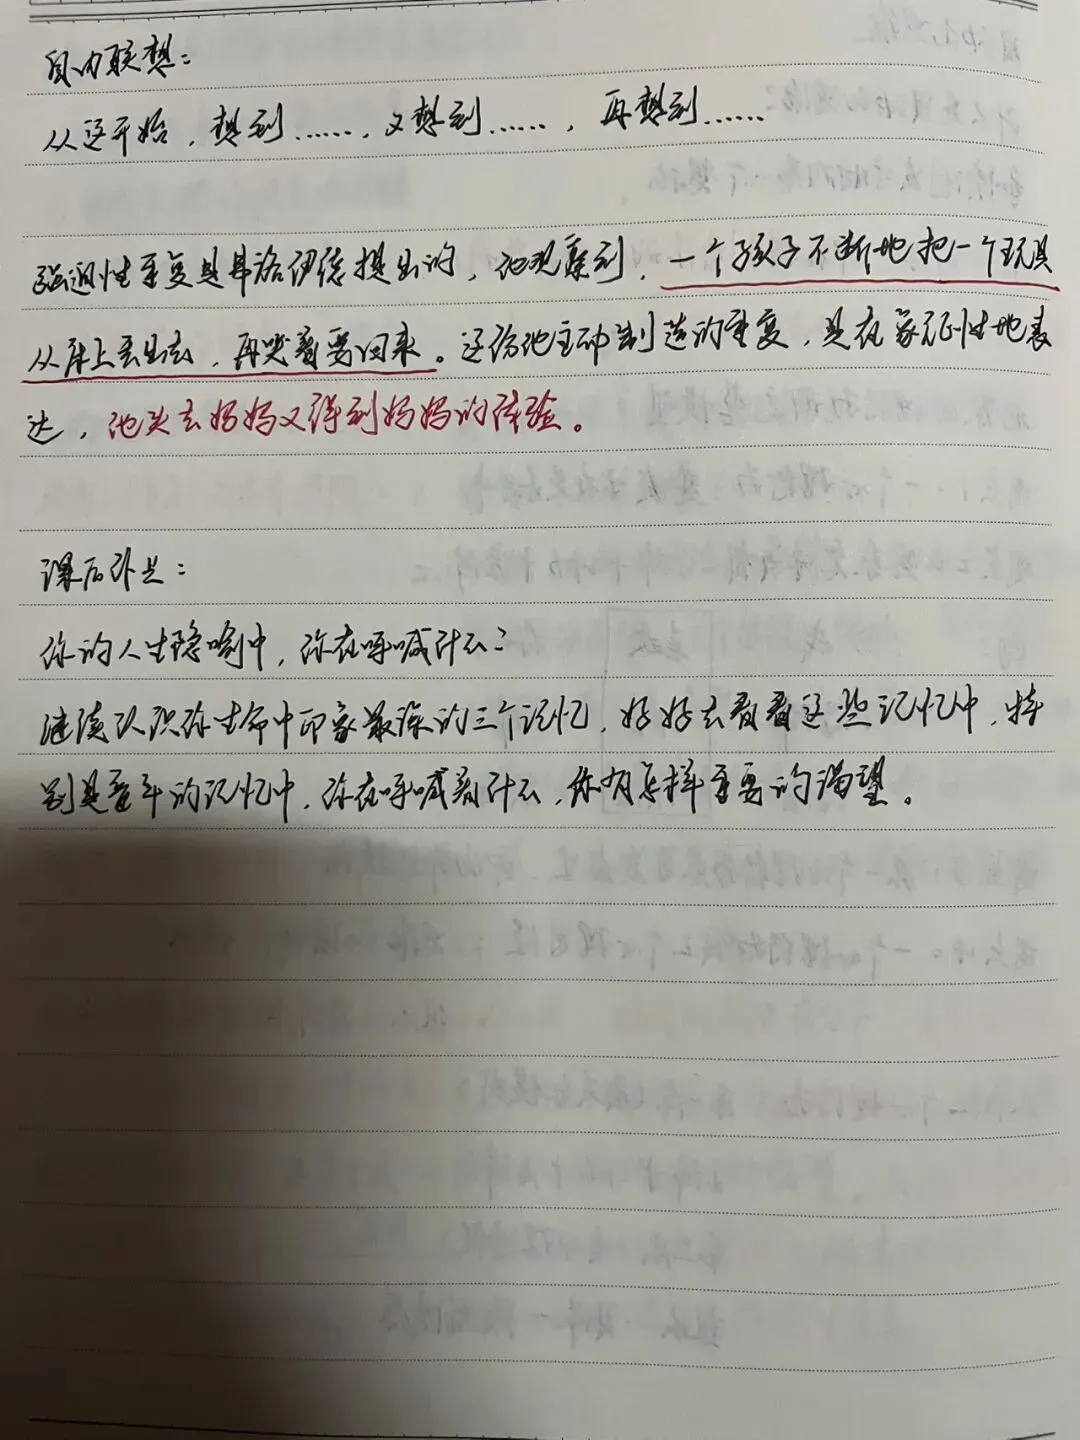 自由联想：
从这开始，想到……，又想到……，再想到……
强迫性重复是弗洛伊德提出的，他观察到，一个孩子不断地把一个玩具
从床上丢出去，再哭着要回来。这份他主动制造的重复，是在象征性地表
达，他失去妈妈又得到妈妈的体验。
课后作业：
你的人生隐喻中，你在呼喊什么？
继续认识你生命中印象最深的三个记忆，好好去看看这些记忆中，特
别是童年的记忆中，你在呼喊着什么，你有怎样重要的渴望。